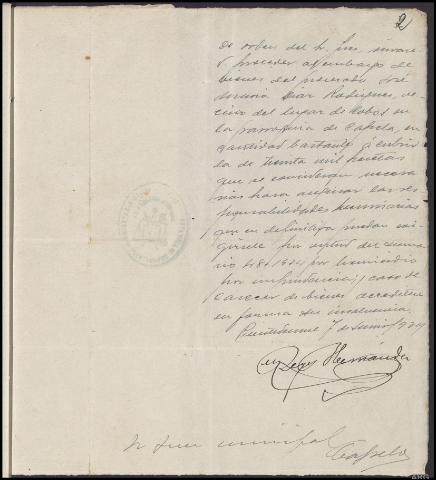 2
De orden del Sr. Juez, sírvase
V. proceder al embargo de
bienes del procesado José
María Díaz Rodríguez, ve-
cino del lugar de en
la parroquia de Capela, en
cantidad bastante á cubrir
la de treinta mil pesetas
que se consideran necesa-
rias para asegurar las res-
ponsabilidades pecuniarias
que en definitiva puedan exi-
girsele por virtud del suma-
rio 48-1924 por homicidio
por imprudencia; y caso de
carecer de bienes acredítese
en forma su insolvencia.
Puentedeume 7 de Junio 1924
Hernández
Sr Juez municipal Capela